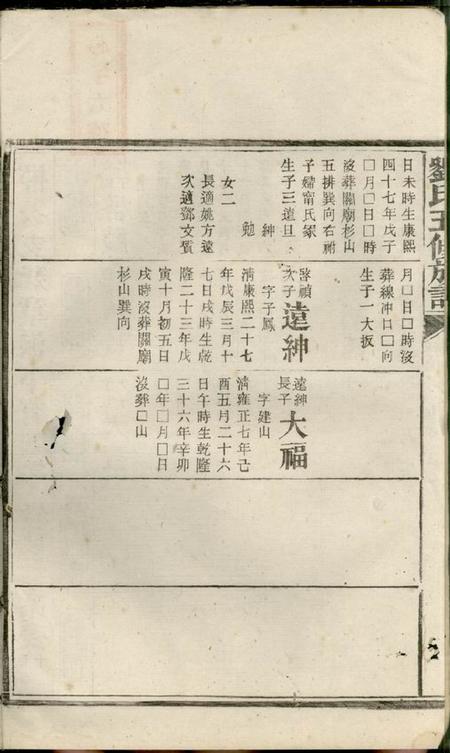 劉氏五修族譜
日未時生康熙
四十七年戊子
囗月囗日囗時
沒葬關廟杉山
五排巽向右祔
子婦甯氏冢
生子三遠旦
紳
勉
女二
長適姚方遠
次適鄧文質
月囗日囗時沒
葬線冲囗囗向
生子一大扳
啓禎
次子
遠紳
字子鳳
清康熙二十七
年戊辰三月十
七日戌時生乾
隆二十三年戊
寅十月初五日
戌時沒葬關廟
杉山巽向
遠紳
長子
大福
字建山
清雍正七年己
酉五月二十六
日午時生乾隆
三十六年辛卯
囗年囗月囗日
沒葬囗山